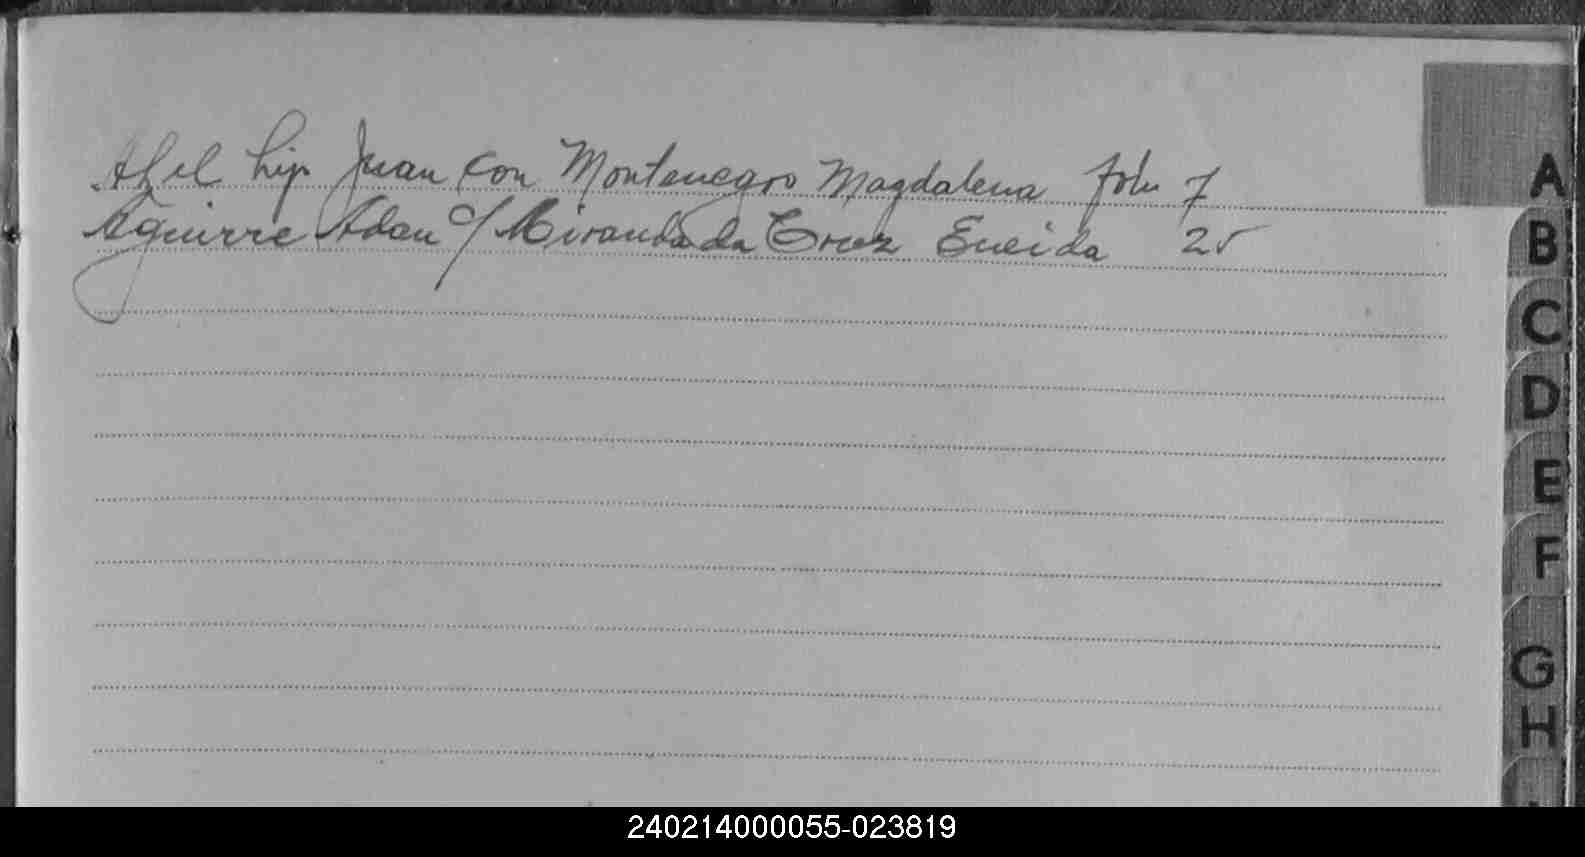 Juan con Montenegro Magdalena folio 7
Aguirre Adan c/ Miranda da Cruz Eneida 25
A
B
C
D
E
F
G
H
240214000055-023819